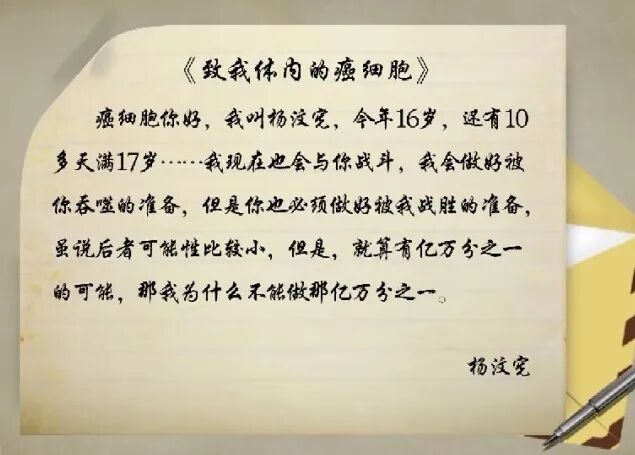 《致我体内的癌细胞》
癌细胞你好，我叫杨汶宪，今年16岁，还有10
多天满17岁……我现在也会与你战斗，我会做好被
你吞噬的准备，但是你也必须做好被我战胜的准备，
虽说后者可能性比较小，但是，就算有亿万分之一
的可能，那我为什么不能做那亿万分之一。
杨汶宪